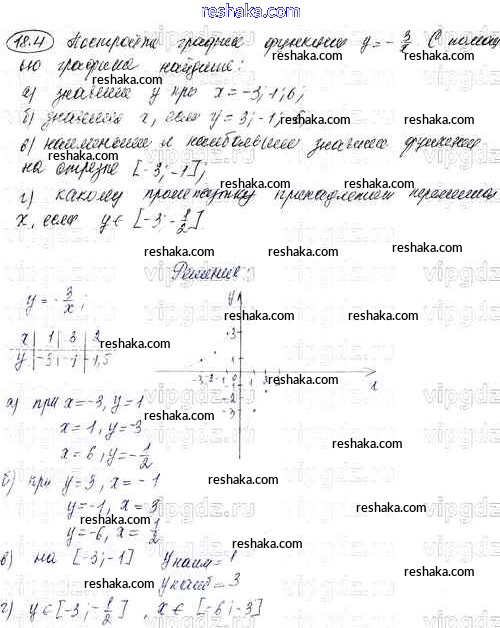 reshaka.com
18.4 Постройте график функции y = -3/x С помощ
ью графика найдите: reshaka.com
а) значение y при x = -3; 1; 6;
reshaka.com reshaka.com
б) значения x, если y = 3; -1;
в) наименьшее и наибольшее значение функции
reshaka.com reshaka.com
на отрезке [-3; -1];
г) какому промежутку принадлежит переменная
reshaka.com reshaka.com
x, если y ∈ [-3; -1/2]
reshaka.com reshaka.com
Решение:
y = -3/x; y
reshaka.com reshaka.com
x | 1 | 3 | 2 3
y | -3 | -1 | -1,5 1
-3 -2 -1 0 1 3
reshaka.com
а) при x = -3, y = 1 -1
-2
-3
x = 1, y = -3
reshaka.com
x = 6, y = -1/2
б) при y = 3, x = -1
reshaka.com reshaka.com
y = -1, x = 3
reshaka.com reshaka.com
y = -6, x = 1/2
в) на [-3; -1] y наим = 1
reshaka.com reshaka.com
y наиб = 3
г) y ∈ [-3; -1/2], x ∈ [-6; -3]
reshaka.com reshaka.com
vipgdz.ru